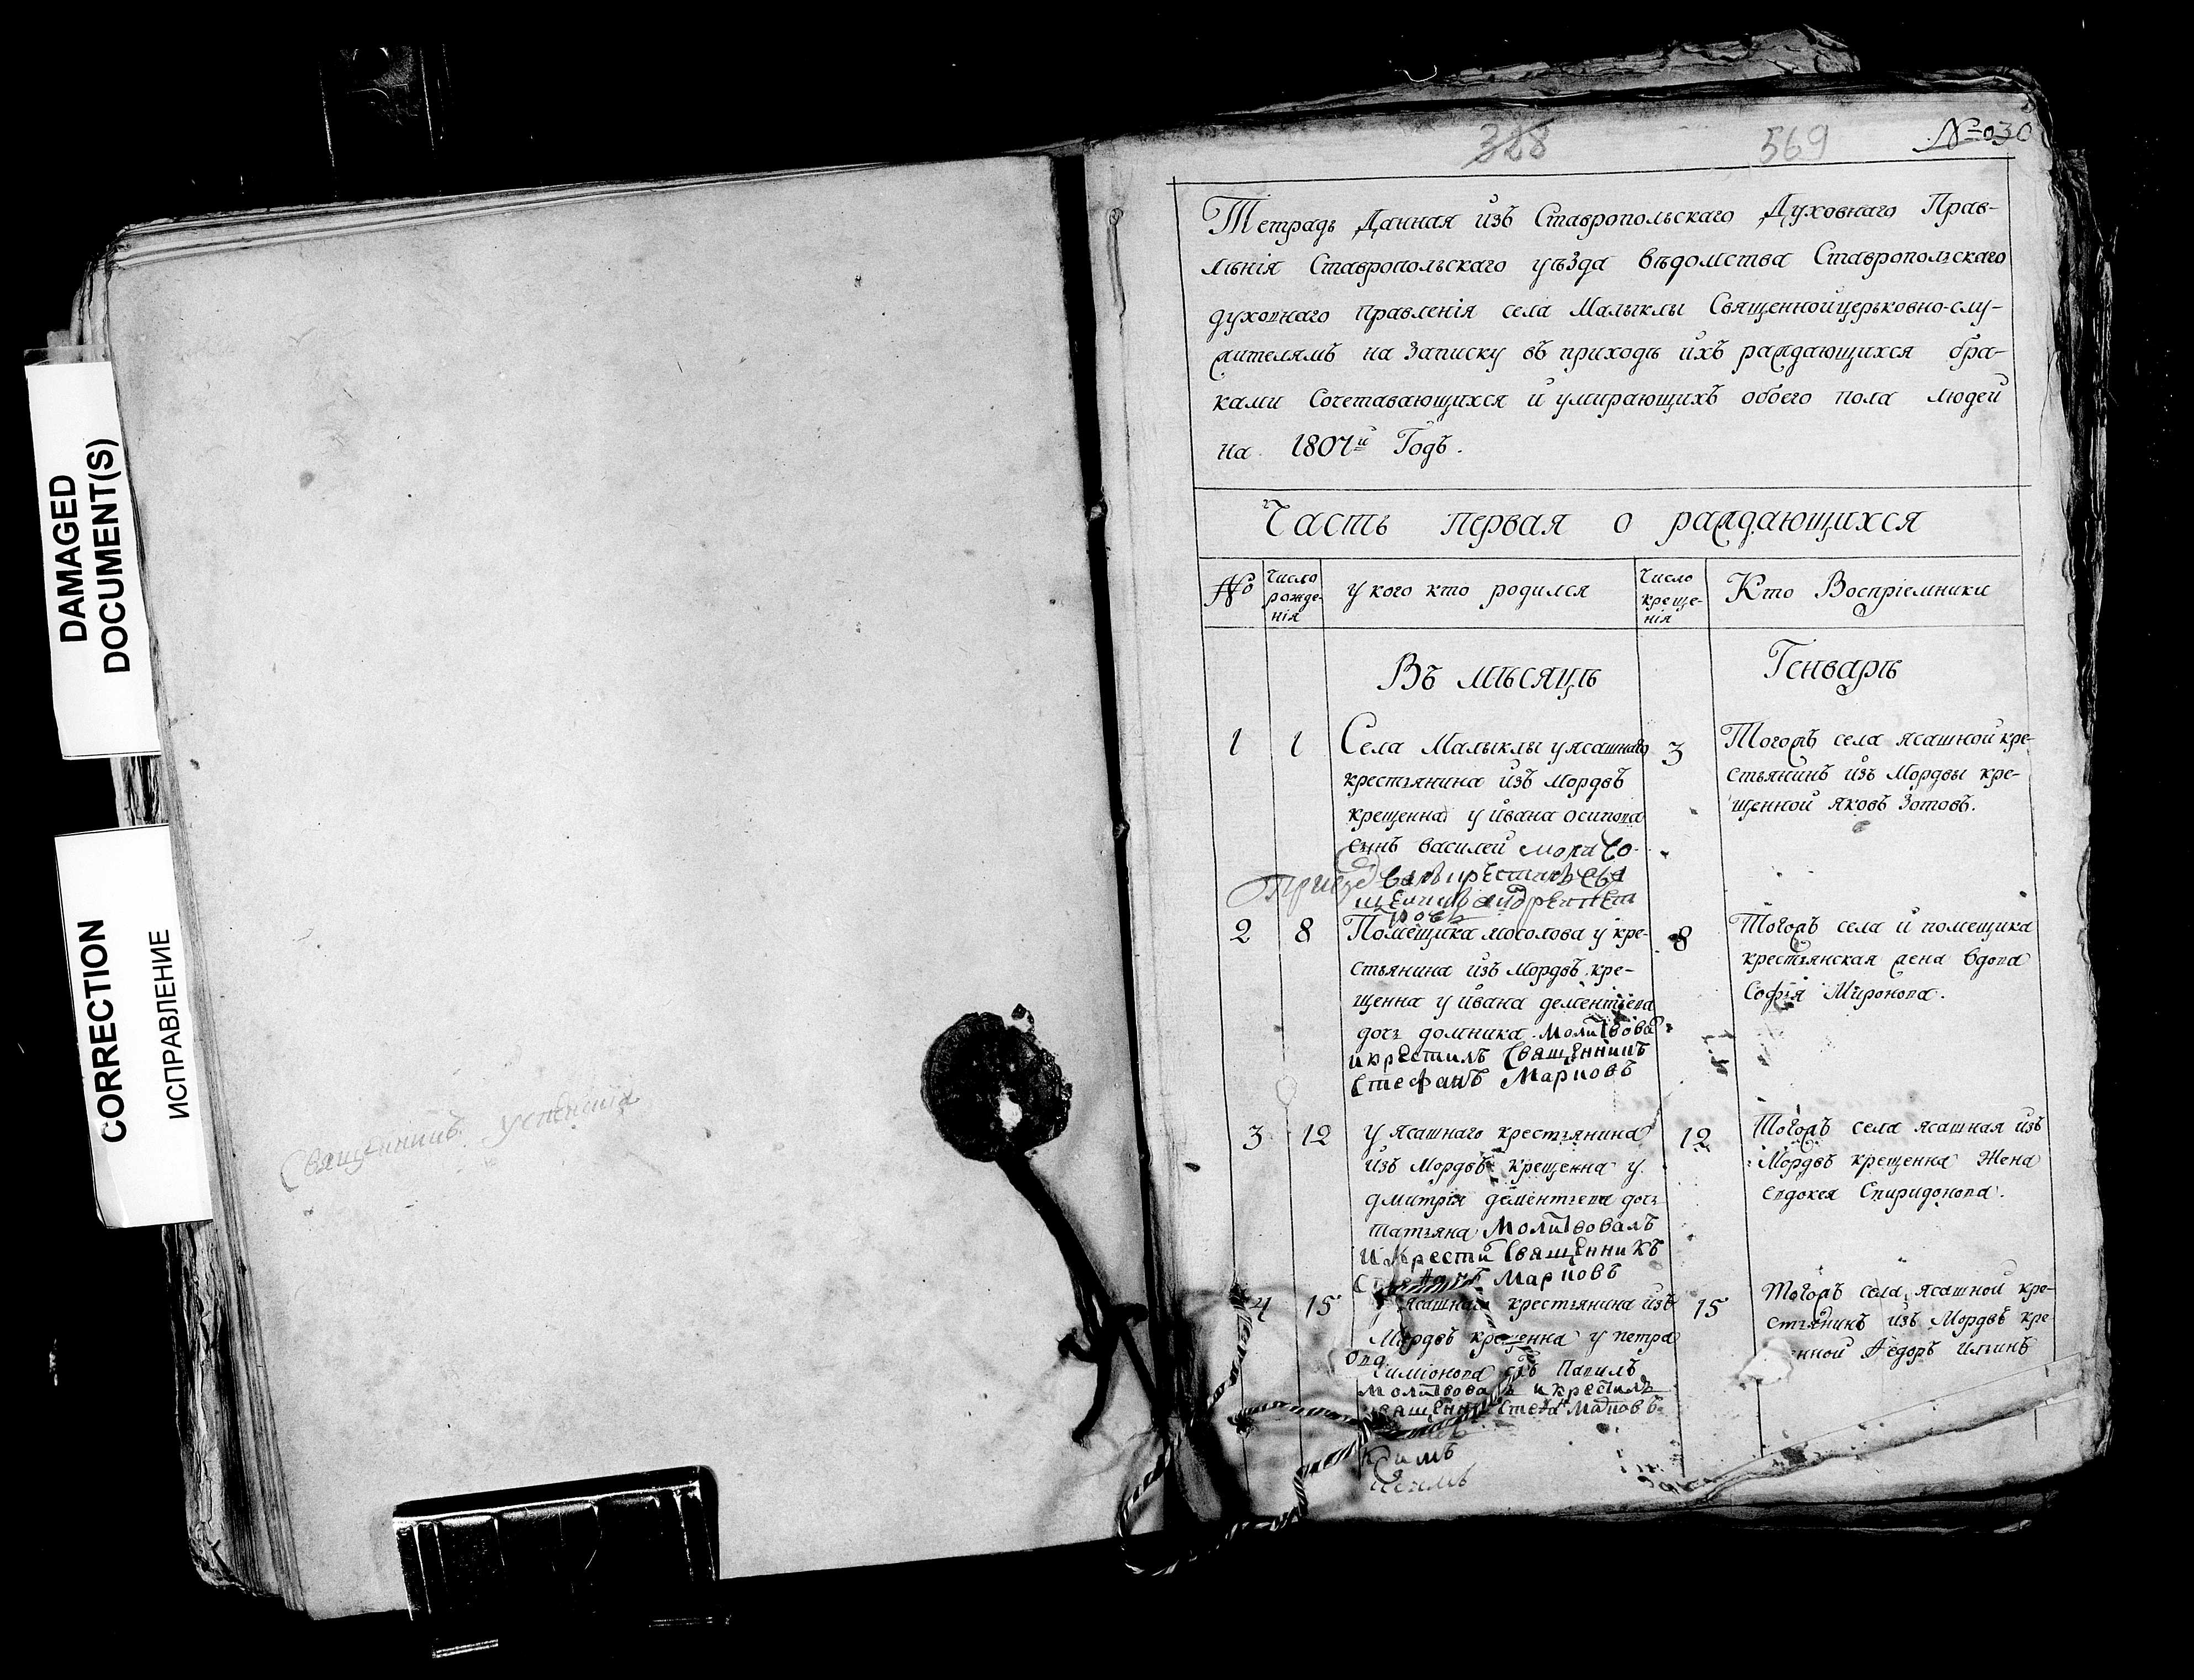 DAMAGED
DOCUMENT(S)
CORRECTION
ИСПРАВЛЕНИЕ
Священникъ Успения
328 569 №030
Тетрадь Данная изъ Ставропольскаго Духовнаго Прав-
лѣнія Ставропольскаго уѣзда вѣдомства Ставропольскаго
духовнаго правленія села Малыклы Священноицерьковно-слу-
жителямъ на записку въ приходѣ ихъ раждающихся бра-
ками Сочетавающихся и умирающихъ обоего пола людей
на 1807й Годъ.
Часть первая о раждающихся
№ Число рожде-нія у кого кто родился Число креще-нія Кто Воспріемники
Въ мѣсяцѣ Генварѣ
1 1 Села Малыклы у ясашнаго 3
крестьянина изъ Мордвъ
крещенна у ивана осипова
сынъ василей моли со-
валъ икрестилъ свя
щенникъ андрей пет
ровъ
Тогожъ села ясашной кре-
стьянинъ изъ Мордвы кре-
щенной яковъ Зотовъ.
2 8 Помещика мосолова у кре- 8
стьянина изъ мордвъ кре-
щенна у ивана дементьева
дочь домника молитвова
икрестилъ Священникъ
Стефанъ Марковъ
Тогожъ села и помещика
крестьянская жена вдова
Софья Миронова.
3 12 у Ясашнаго крестьянина 12
изъ Мордвъ крещенна у
дмитрія дементьева дочь
татьяна Молитвовалъ
И крести Священникъ
Стефанъ Марковъ
Тогожъ села ясашная изъ
Мордвъ крещенна Жена
евдокея Спиридонова.
4 15 у ясашнаго крестьянина изъ 15
Мордвъ крещенна у петра
Симіонова снъ Павилъ
молитвовалъ и крестилъ
священни Стефа Марковъ
Тогожъ села ясашной кре-
стьянинъ изъ Мордвъ кре
нной Ѳедоръ Ильинъ